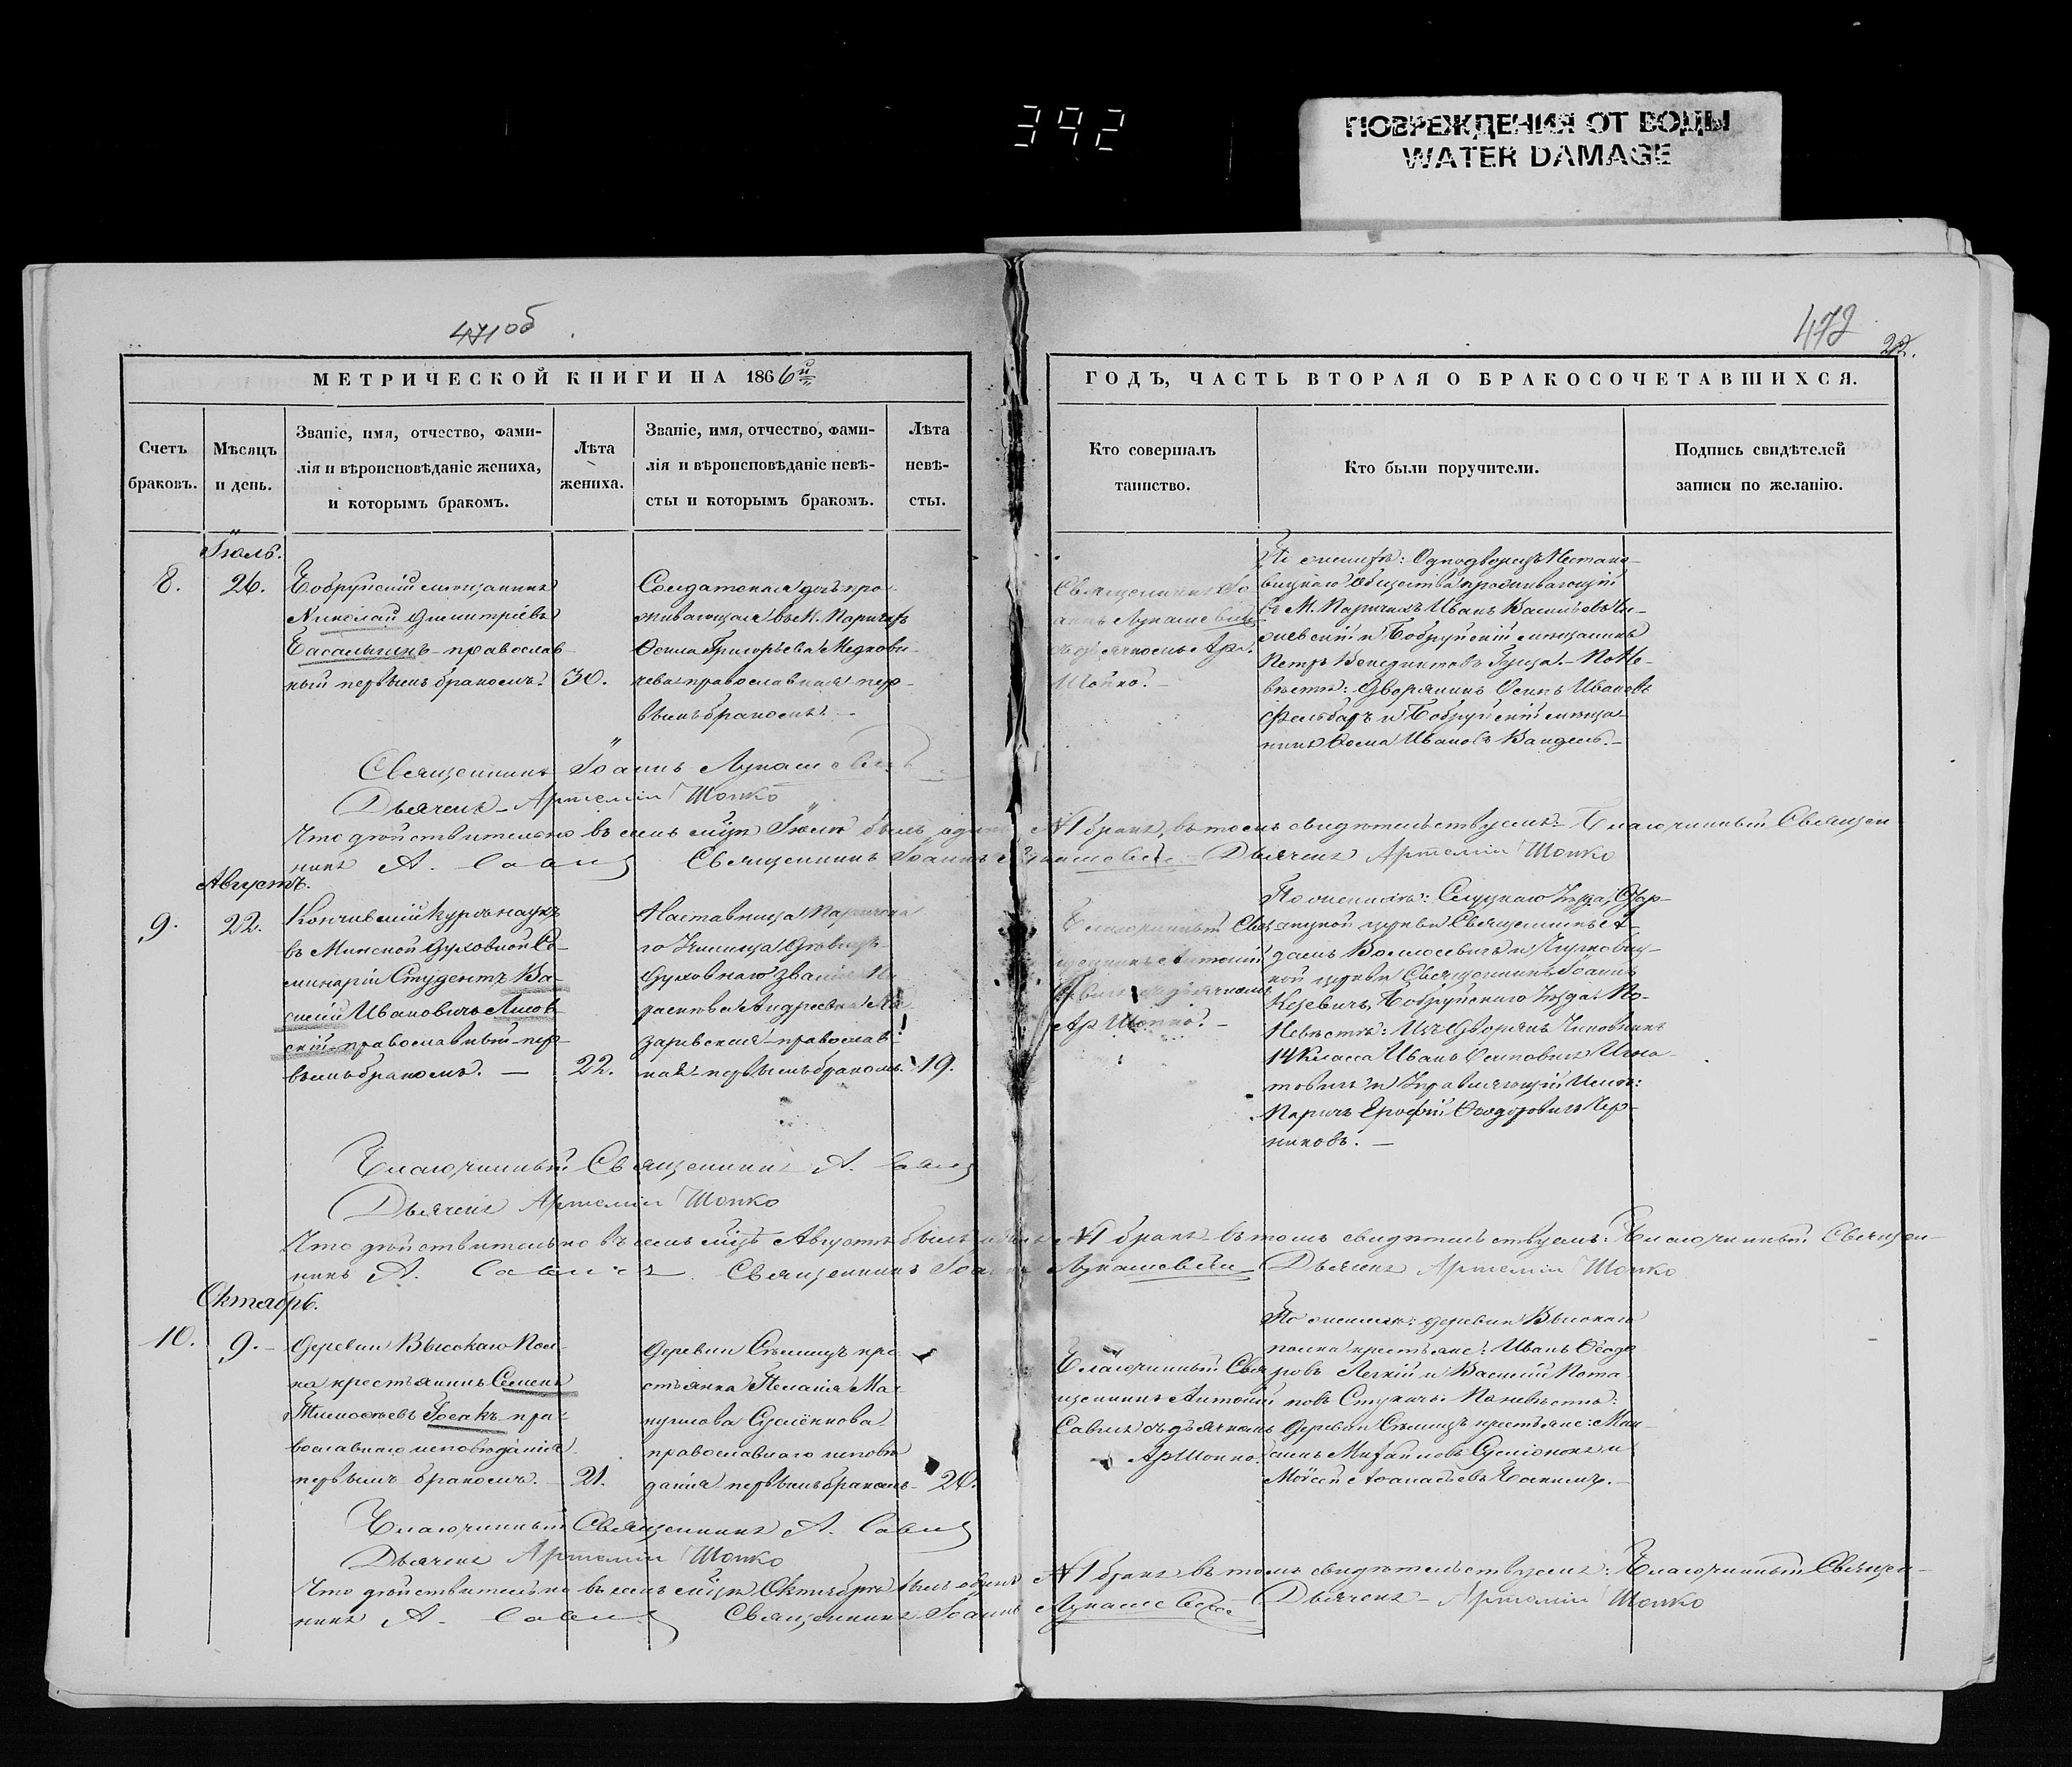 392
ПОВРЕЖДЕНИЯ ОТ ВОДЫ
WATER DAMAGE
471об
472
22.
МЕТРИЧЕСКОЙ КНИГИ НА 1866й
ГОДЪ, ЧАСТЬ ВТОРАЯ О БРАКОСОЧЕТАВШИХСЯ.
Счетъ
браковъ.
Мѣсяцъ
и день.
Званіе, имя, отчество, фами-
лія и вѣроисповѣданіе жениха,
и которымъ бракомъ.
Лѣта
жениха.
Званіе, имя, отчество, фами-
лія и вѣроисповѣданіе невѣ-
сты и которымъ бракомъ.
Лѣта
невѣ-
сты.
Кто совершалъ
таинство.
Кто были поручители.
Подпись свидѣтелей
записи по желанію.
Іюль.
8.
26.
Бобруйскій мѣщанинъ
Николай Димитріевъ
православ-
ный первымъ бракомъ.
30.
Солдатская дочь про-
живающая въ М. Паричахъ
Григорьева
православная пер-
вымъ бракомъ.
Священникъ Іо-
аннъ Лукашевичъ
съ дьячкомъ Ар.
Шопко.
По женихѣ: Однодворецъ
общества проживающій
въ М. Паричахъ Иванъ Васильевъ
и Бобруйскій мѣщанинъ
Петръ Бенедиктовъ По не-
вѣстѣ: Дворянинъ Осипъ Ивановъ
и Бобруйскій мѣща-
нинъ Ѳома Ивановъ
Священникъ Іоаннъ Лукашевичъ
Дьячекъ Артемій Шопко
Что дѣйствительно въ семъ мѣсяцѣ Іюлѣ былъ одинъ №1 бракъ, въ томъ свидѣтельствуемъ: Благочинный Священ-
никъ А. Савичъ Священникъ Іоаннъ Лукашевичъ Дьячекъ Артемій Шопко
Августъ.
9.
22.
Кончившій курсъ наукъ
въ Минской Духовной Се-
минаріи Студентъ Ва-
силій Ивановичъ Лисов-
скій православный пер-
вымъ бракомъ.
22.
Наставница Паричска-
го Училища Дѣвицъ
Духовнаго званія
Андреевна На-
заревская православ-
ная первымъ бракомъ
19.
Благочинный Свя-
щенникъ Антоній
Савичъ съ дьячкомъ
Ар Шопко.
По женихѣ: Слуцкаго Уѣзда,
церкви Священникъ А-
дамъ и
кой церкви Священникъ Іоаннъ
Бобруйскаго Уѣзда По
Невѣстѣ: Изъ Дворянъ Чиновникъ
14 Класса Иванъ Игна-
товичъ и Управляющій
Паричъ Ерофей Ѳеодоровичъ Чер-
никовъ.
Благочинный Священникъ А. Савичъ
Дьячекъ Артемій Шопко
Что дѣйствительно въ семъ мѣсяцѣ Августѣ былъ одинъ №1 бракъ въ томъ свидѣтельствуемъ: Благочинный Священ-
никъ А. Савичъ Священникъ Іоаннъ Лукашевичъ Дьячекъ Артемій Шопко
Октябрь.
10.
9.
Деревни Высокаго Пол-
ка крестьянинъ Семенъ
Тимоѳеевъ Госакъ пра-
вославнаго исповѣданія
первымъ бракомъ.
21.
Деревни кре-
стьянка Пелагія
православнаго исповѣ-
данія первымъ бракомъ
20.
Благочинный Свя-
щенникъ Антоній
Савичъ съ дьячкомъ
Ар Шопко.
По женихѣ: деревни Высокаго
полка крестьяне: Иванъ Ѳеодо-
ровъ Легкій и Василій Пота-
повъ По невѣстѣ:
Деревни крестьяне: Мак-
симъ и
Моисей Аѳанасьевъ
Благочинный Священникъ А. Савичъ
Дьячекъ Артемій Шопко
Что дѣйствительно въ семъ мѣсяцѣ Октябрѣ былъ одинъ №1 бракъ въ томъ свидѣтельствуемъ: Благочинный Священ-
никъ А. Савичъ Священникъ Іоаннъ Лукашевичъ Дьячекъ Артемій Шопко